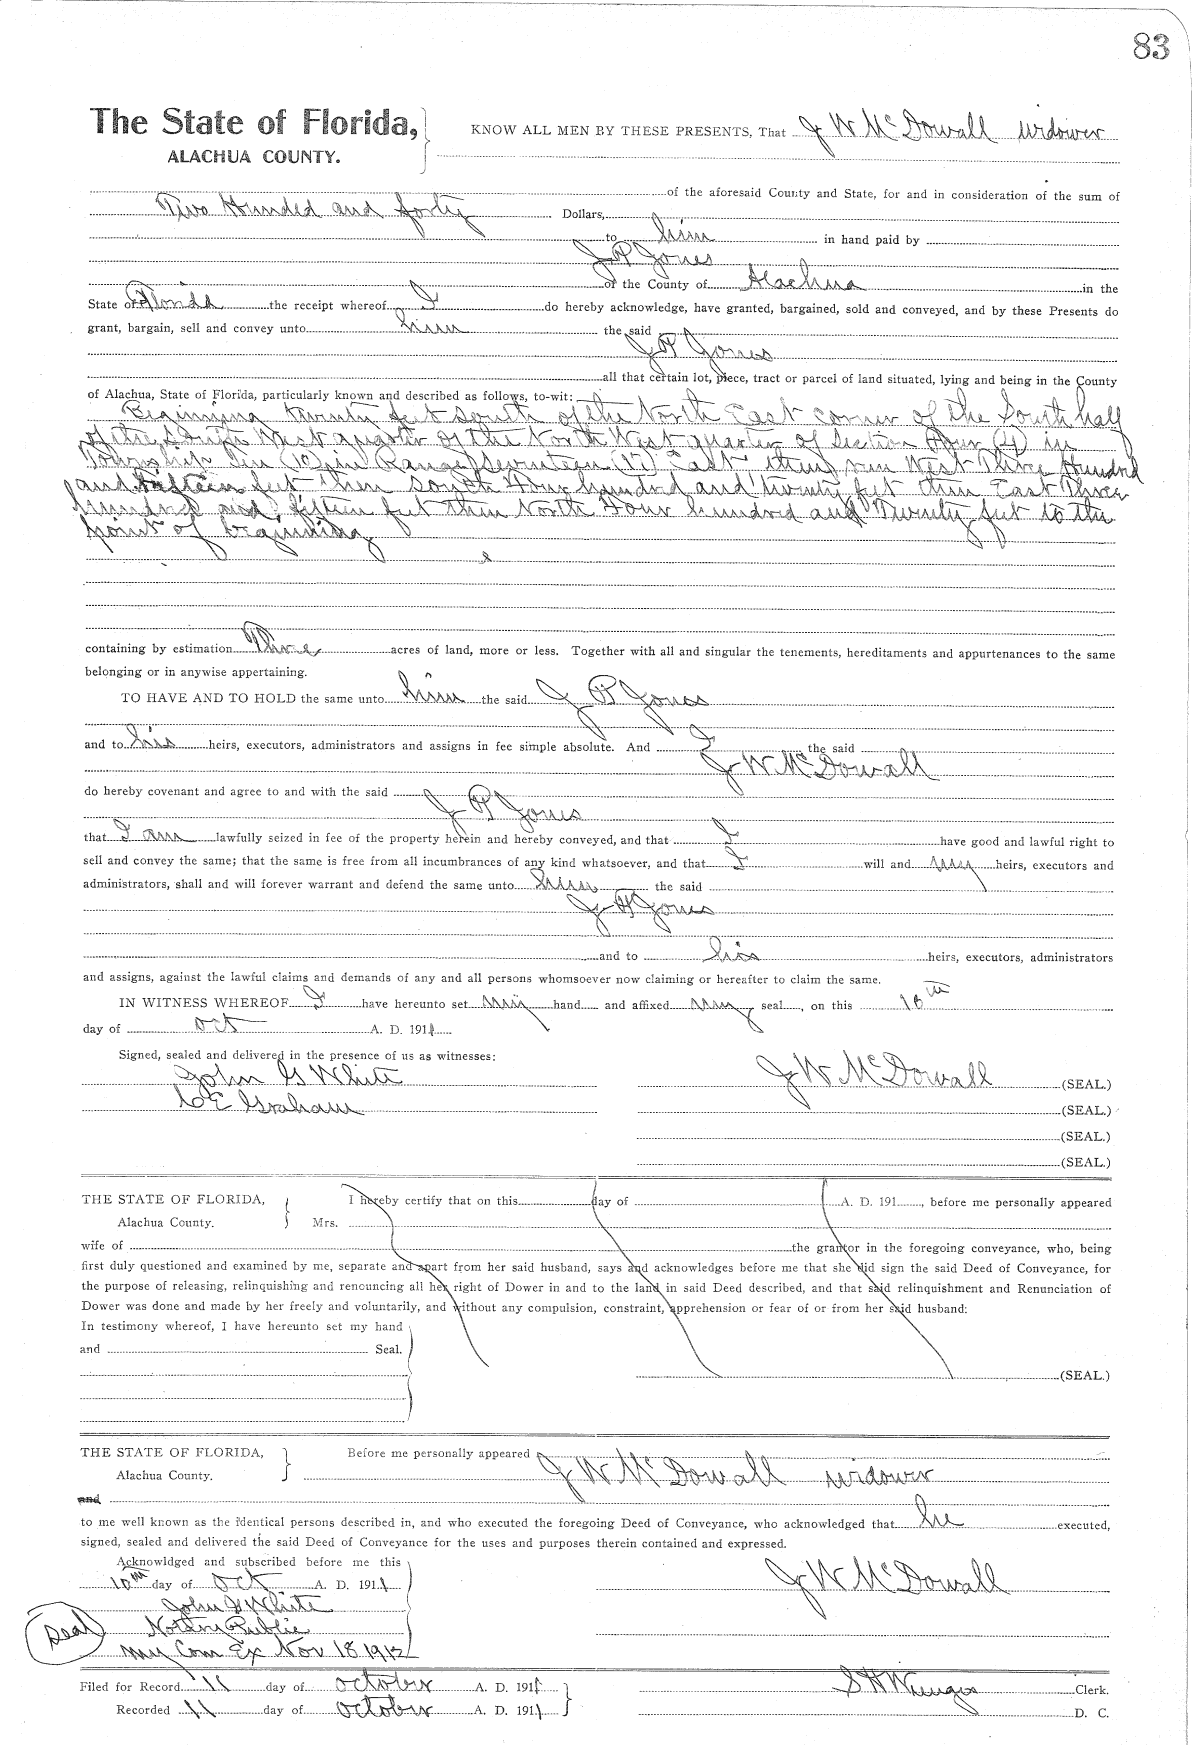 83
The State of Florida, KNOW ALL MEN BY THESE PRESENTS, That J W McDowall widower
ALACHUA COUNTY.
of the aforesaid County and State, for and in consideration of the sum of
Two Hunded and forty Dollars,
to him in hand paid by
J P Jones
of the County of Alachua in the
State of Florida the receipt whereof I do hereby acknowledge, have granted, bargained, sold and conveyed, and by these Presents do
grant, bargain, sell and convey unto him the said
J P Jones
all that certain lot, piece, tract or parcel of land situated, lying and being in the County
of Alachua, State of Florida, particularly known and described as follows, to-wit:
Beginning twenty feet south of the North East corner of the South half
of the South West quarter of the North West quarter of Section Four (4) in
Township Ten (10) in Range Seventeen (17) East then run West Three Hundred
and fifteen feet then South Four hundred and twenty feet then East Three
hundred and fifteen feet then North Four hundred and Twenty feet to the
point of beginning
containing by estimation Three acres of land, more or less. Together with all and singular the tenements, hereditaments and appurtenances to the same
belonging or in anywise appertaining.
TO HAVE AND TO HOLD the same unto him the said J P Jones
and to his heirs, executors, administrators and assigns in fee simple absolute. And I the said
J W McDowall
do hereby covenant and agree to and with the said
J P Jones
that I am lawfully seized in fee of the property herein and hereby conveyed, and that I have good and lawful right to
sell and convey the same; that the same is free from all incumbrances of any kind whatsoever, and that I will and my heirs, executors and
administrators, shall and will forever warrant and defend the same unto him the said
J P Jones
and to his heirs, executors, administrators
and assigns, against the lawful claims and demands of any and all persons whomsoever now claiming or hereafter to claim the same.
IN WITNESS WHEREOF I have hereunto set my hand and affixed my seal, on this 10th
day of Oct A. D. 1911
Signed, sealed and delivered in the presence of us as witnesses:
John G White J W McDowall (SEAL.)
C E Graham (SEAL.)
(SEAL.)
(SEAL.)
THE STATE OF FLORIDA, I hereby certify that on this day of A. D. 191 , before me personally appeared
Alachua County. Mrs.
wife of the grantor in the foregoing conveyance, who, being
first duly questioned and examined by me, separate and apart from her said husband, says and acknowledges before me that she did sign the said Deed of Conveyance, for
the purpose of releasing, relinquishing and renouncing all her right of Dower in and to the land in said Deed described, and that said relinquishment and Renunciation of
Dower was done and made by her freely and voluntarily, and without any compulsion, constraint, apprehension or fear of or from her said husband:
In testimony whereof, I have hereunto set my hand
and Seal.
(SEAL.)
THE STATE OF FLORIDA, Before me personally appeared
Alachua County. J W McDowall widower
and
to me well known as the identical persons described in, and who executed the foregoing Deed of Conveyance, who acknowledged that he executed,
signed, sealed and delivered the said Deed of Conveyance for the uses and purposes therein contained and expressed.
Acknowldged and subscribed before me this
10th day of Oct A. D. 1911 J W McDowall
John G White
Seal Notary Public
My Com Ex Nov 18 1912
Filed for Record 11 day of October A. D. 1911 Clerk.
Recorded 11 day of October A. D. 1911 D. C.